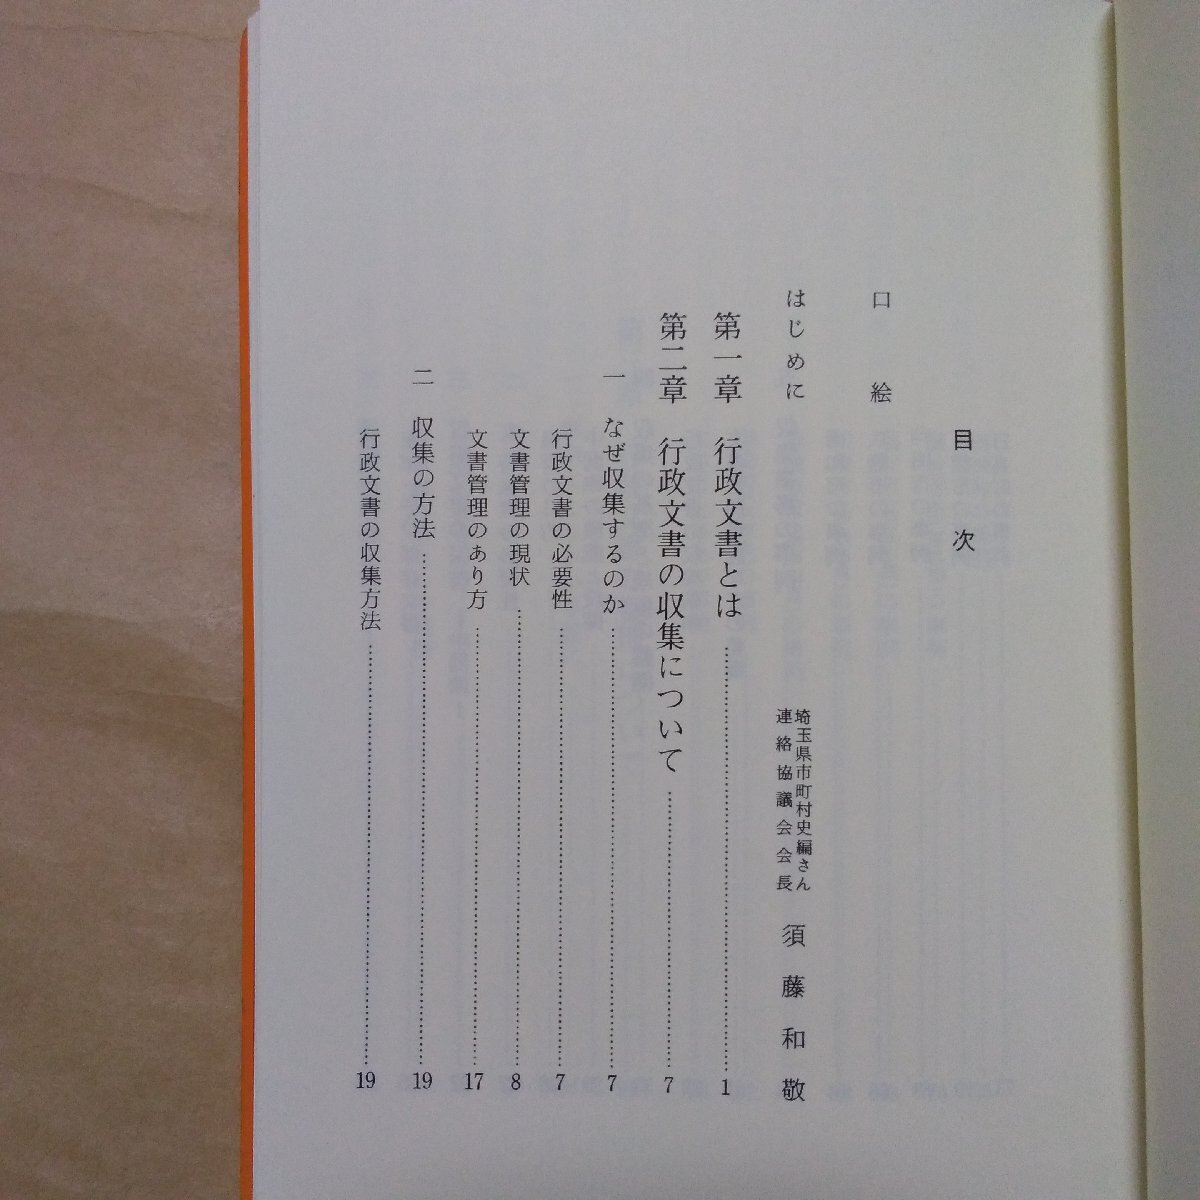 目次
口絵
はじめに
埼玉県市町村史編さん
連絡協議会会長
須藤和敬
第一章 行政文書とは……………1
第二章 行政文書の収集について……………7
一 なぜ収集するのか……………7
行政文書の必要性……………7
文書管理の現状……………8
文書管理のあり方……………17
二 収集の方法……………19
行政文書の収集方法……………19